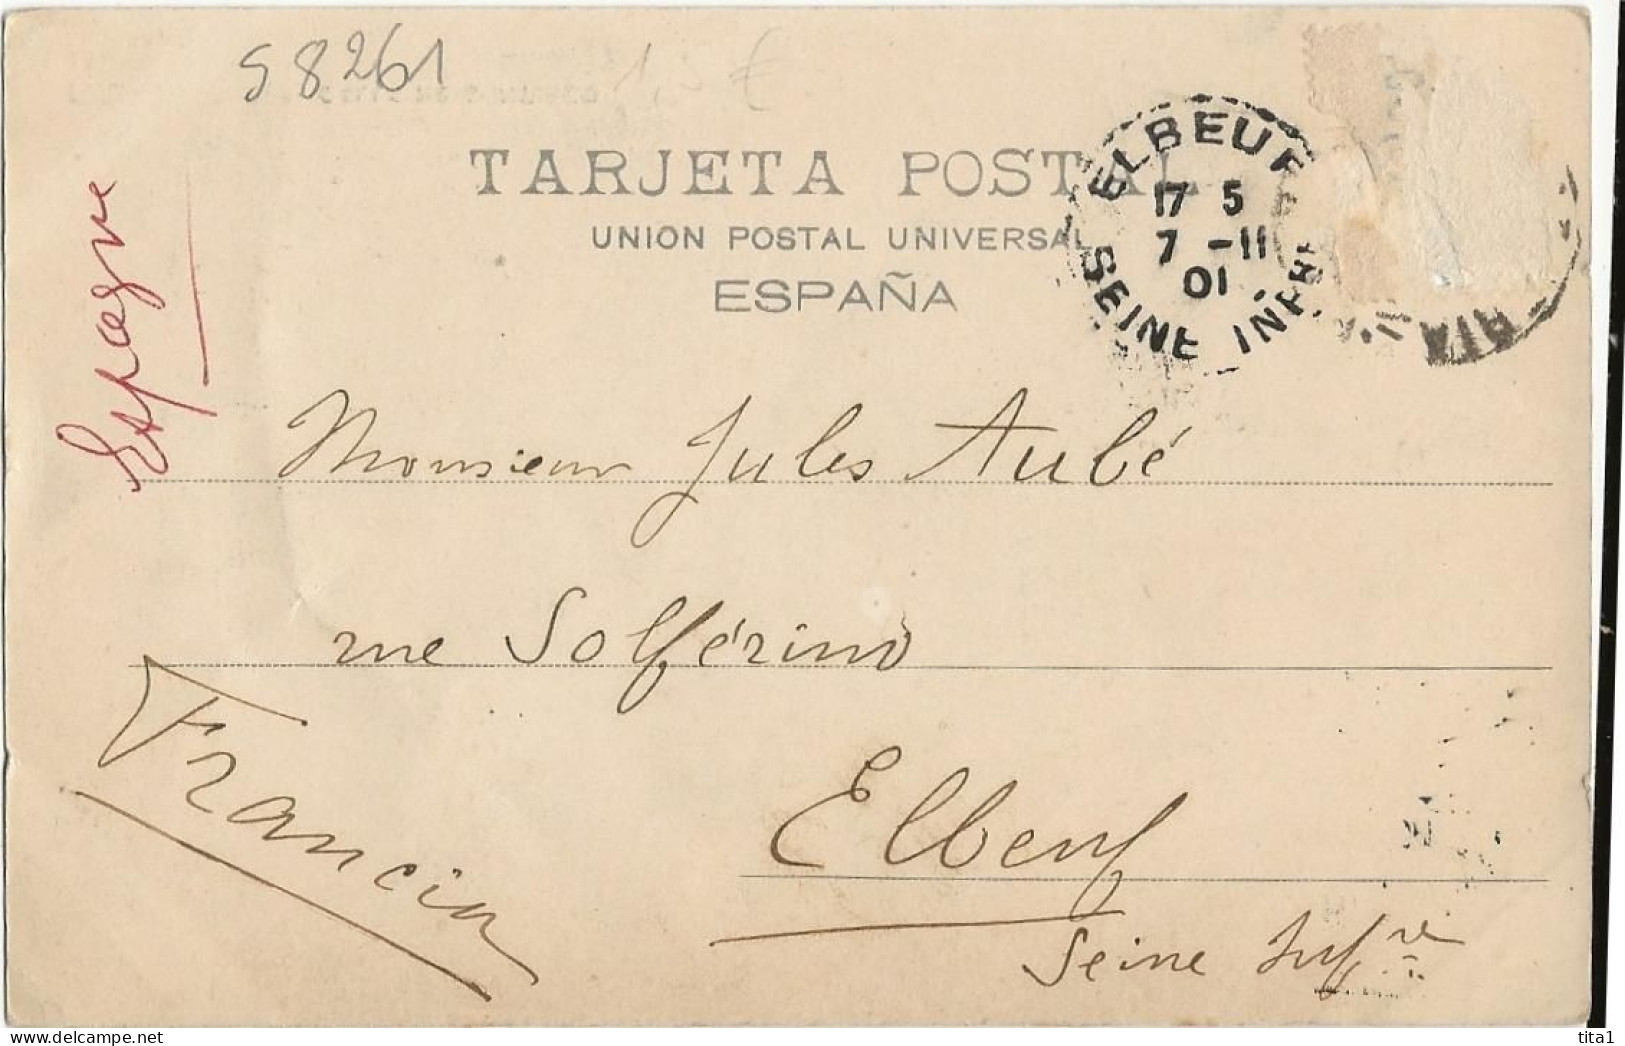 58261
15€
TARJETA POSTAL
UNION POSTAL UNIVERSAL
ESPAÑA
ELBEUF
17 5
7 -11
01
SEINE INFRE
Espagne
Monsieur Jules Aubé
rue Solférino
Francia
Elbeuf
Seine Infre
tita1